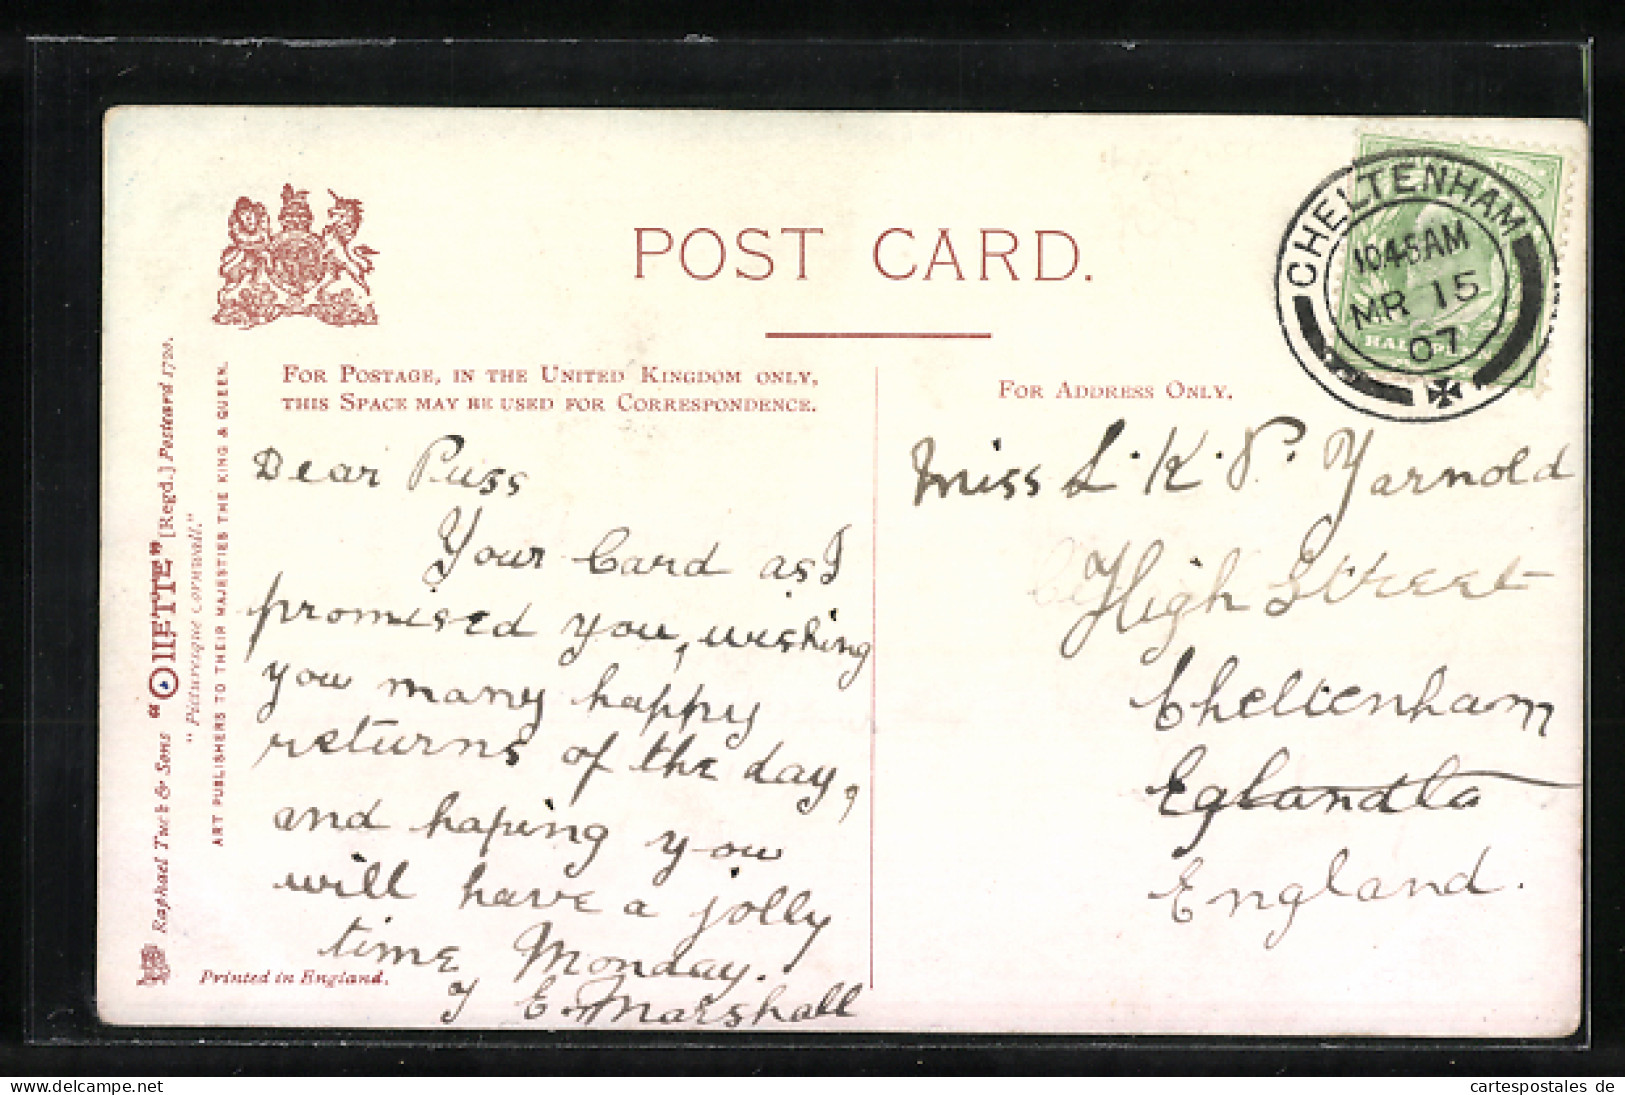 POST CARD.
FOR POSTAGE, IN THE UNITED KINGDOM ONLY,
THIS SPACE MAY BE USED FOR CORRESPONDENCE.
FOR ADDRESS ONLY.
CHELTENHAM
10.45AM
MR 15
07
Dear Puss
Your Card as I
promised you, wishing
you many happy
returns of the day,
and hoping you
will have a jolly
time, Monday.
E. Marshall
Miss L. K. P. Yarnold
High Street
Cheltenham
England.
Raphael Tuck & Sons "OILETTE" [Regd.] Postcard 1720.
"Picturesque Cornwall."
ART PUBLISHERS TO THEIR MAJESTIES THE KING & QUEEN.
Printed in England.
www.cartespostales.de
cartespostales de